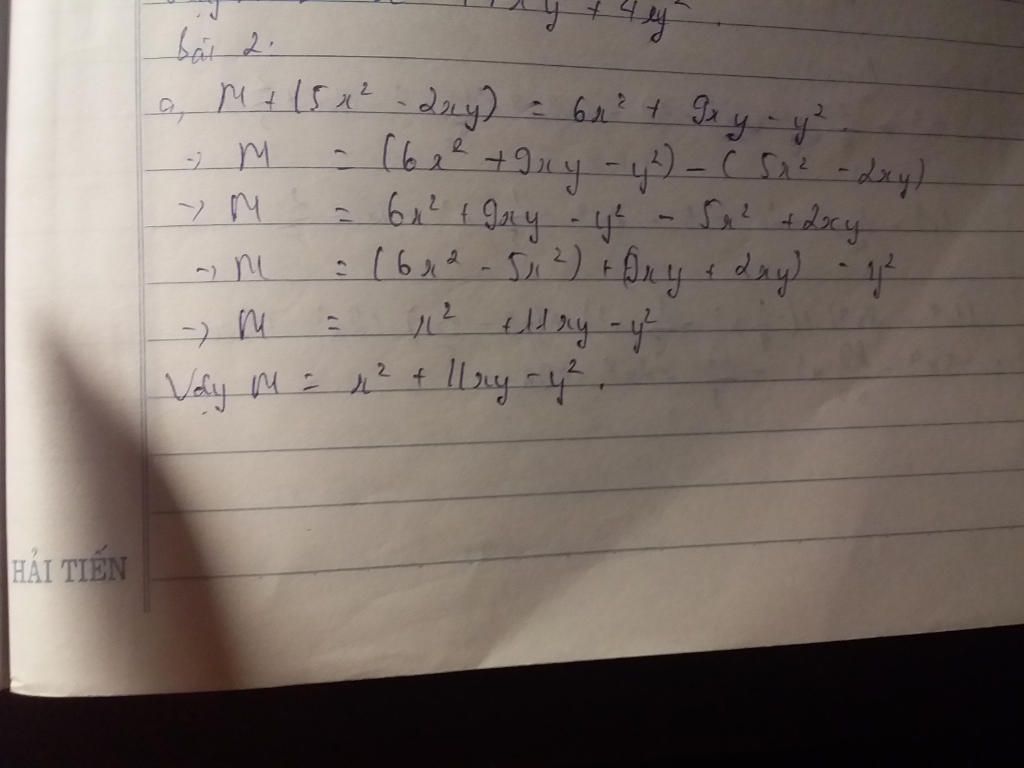 xy + 4xy²
Bài 2:
a, M + (5x² - 2xy) = 6x² + 9xy - y².
→ M = (6x² + 9xy - y²) - (5x² - 2xy)
→ M = 6x² + 9xy - y² - 5x² + 2xy
→ M = (6x² - 5x²) + (9xy + 2xy) - y²
→ M = x² + 11xy - y²
Vậy M = x² + 11xy - y².
HẢI TIẾN